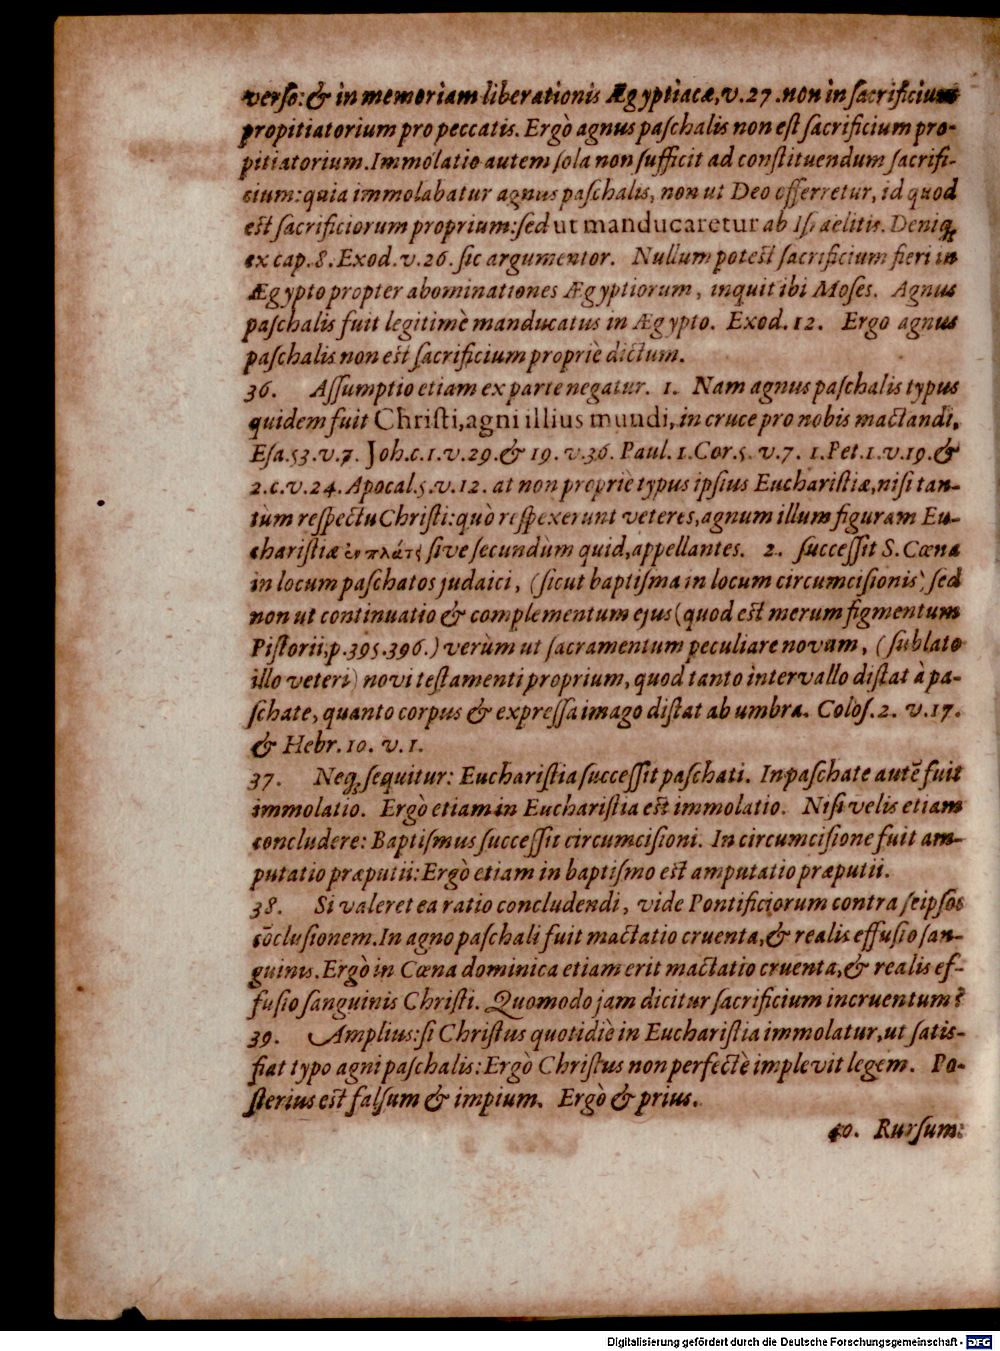 verſo: & in memoriam liberationis Ægyptiacæ, v. 27. non in ſacrificium
propitiatorium pro peccatis. Ergò agnus paſchalis non eſt ſacrificium pro-
pitiatorium. Immolatio autem ſola non ſufficit ad conſtituendum ſacrifi-
cium: quia immolabatur agnus paſchalis, non ut Deo offerretur, id quod
eſt ſacrificiorum proprium: ſed ut manducaretur ab Iſraelitis. Deniq;
ex cap. 8. Exod. v. 26. ſic argumentor. Nullum poteſt ſacrificium fieri in
Ægypto propter abominationes Ægyptiorum, inquit ibi Moſes. Agnus
paſchalis fuit legitimè manducatus in Ægypto. Exod. 12. Ergo agnus
paſchalis non eſt ſacrificium propriè dictum.
36. Aſſumptio etiam ex parte negatur. 1. Nam agnus paſchalis typus
quidem fuit Chriſti, agni illius mundi, in cruce pro nobis mactandi,
Eſa. 53. v. 7. Joh. c. 1. v. 29. & 19. v. 36. Paul. 1. Cor. 5. v. 7. 1. Pet. 1. v. 19. &
2. c. v. 24. Apocal. 5. v. 12. at non propriè typus ipſius Euchariſtiæ, niſi tan-
tùm reſpectu Chriſti: quò reſpexerunt veteres, agnum illum figuram Eu-
chariſtiæ ἐν πλάτει ſive ſecundùm quid, appellantes. 2. ſucceſſit S. Cœna
in locum paſchatos judaici, (ſicut baptiſma in locum circumciſionis) ſed
non ut continuatio & complementum ejus (quod eſt merum figmentum
Piſtorii, p. 395. 396.) verùm ut ſacramentum peculiare novum, (ſublato
illo veteri) novi teſtamenti proprium, quod tanto intervallo diſtat à pa-
ſchate, quanto corpus & expreſſa imago diſtat ab umbra. Coloſ. 2. v. 17.
& Hebr. 10. v. 1.
37. Neq; ſequitur: Euchariſtia ſucceſſit paſchati. In paſchate autē fuit
immolatio. Ergò etiam in Euchariſtia eſt immolatio. Niſi velis etiam
concludere: Baptiſmus ſucceſſit circumciſioni. In circumciſione fuit am-
putatio præputii: Ergò etiam in baptiſmo eſt amputatio præputii.
38. Si valeret ea ratio concludendi, vide Pontificiorum contra ſeipſos
cōcluſionem. In agno paſchali fuit mactatio cruenta, & realis effuſio ſan-
guinis. Ergò in Cœna dominica etiam erit mactatio cruenta, & realis ef-
fuſio ſanguinis Chriſti. Quomodo jam dicitur ſacrificium incruentum?
39. Amplius: ſi Chriſtus quotidiè in Euchariſtia immolatur, ut ſatis-
fiat typo agni paſchalis: Ergò Chriſtus non perfectè implevit legem. Po-
ſterius eſt falſum & impium. Ergò & prius.
40. Rurſum:
Digitalisierung gefördert durch die Deutsche Forschungsgemeinschaft - DFG